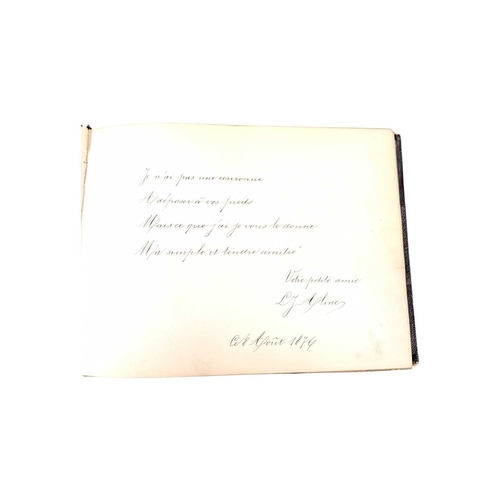 Je n'ai pas une couronne
A déposer à vos pieds
Mais ce que j'ai je vous le donne
Ma simple et tendre amitié
Votre petite amie
Août 1876